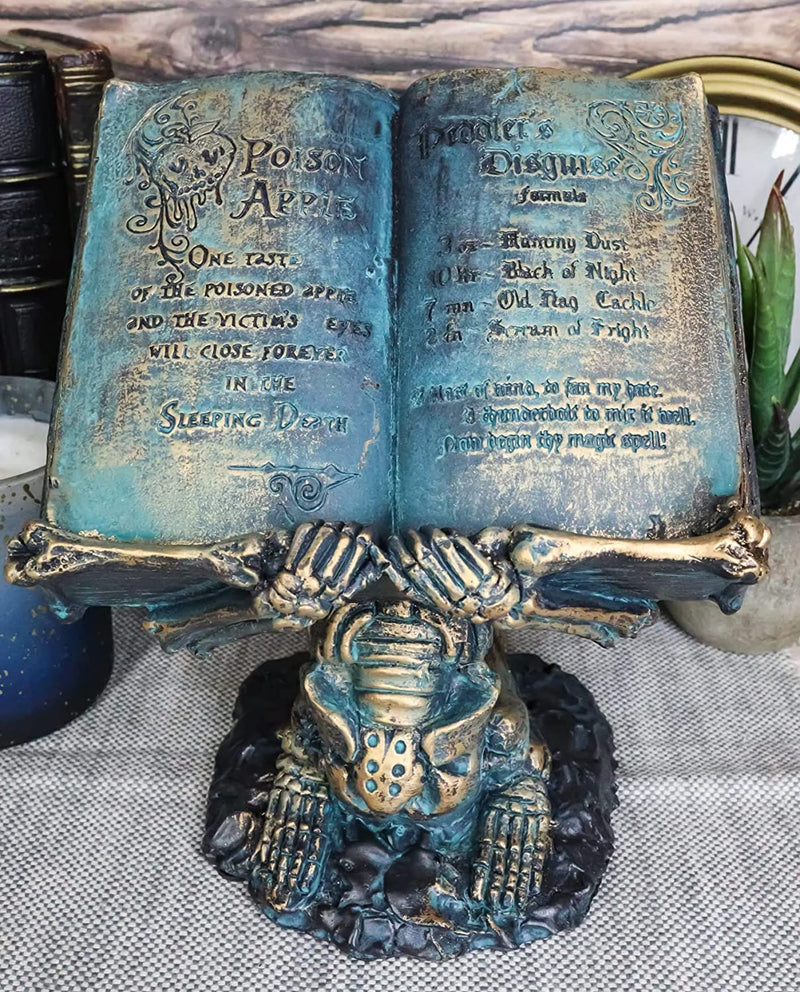 POISON
APPLE
ONE TASTE
OF THE POISONED APPLE
AND THE VICTIM'S EYES
WILL CLOSE FOREVER
IN THE
SLEEPING DEATH
Peddler's
Disguise
formula
Mummy Dust
Black of Night
Old Hag Cackle
Scream of Fright
Blast of wind, to fan my hate.
A thunderbolt to mix it well.
Now begin thy magic spell!